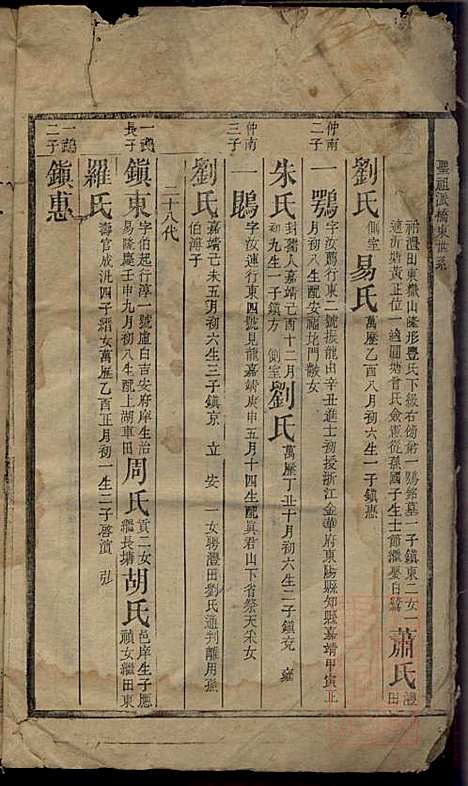 聖祖派橋東世系
祔澧田東嶽山隆形豐氏下級右衛第一鶚銘墓一子鎮東二女一
適沂塘黃正位一適圓塘曾氏僉憲從孫國子生士節繼娶白鷺
蕭氏 澧田
劉氏 側室
易氏 萬歷乙酉八月初六生一子鎮惠
仲南二子
一鶚 字汝薦行東二號振龍由辛丑進士初授浙江金華府東陽縣知縣嘉靖甲寅正
月初八生配安福北門歡女
朱氏 封孺人嘉靖己酉十二月初九生一子鎮方 側室
劉氏 萬歷丁丑十月初六生二子鎮兗 雍
仲南三子
一鵾 字汝運行東四號見龍嘉靖庚申五月十四生配眞君山下省祭天采女
劉氏 嘉靖己未五月初六生三子鎮京 立 安 一女聘澧田劉氏通判離用孫
伯濤子
二十八代
一鶚長子
鎮東 字伯起行淳一號盧白吉安府庠生治
易隆慶壬申九月初八生配上湖車田
周氏 貢二女繼長塘
胡氏 邑庠生子應禎女繼田東
羅氏 壽官成洸四子縉女萬歷乙酉正月初一生二子啓濱 弘
一鶚二子
鎮惠